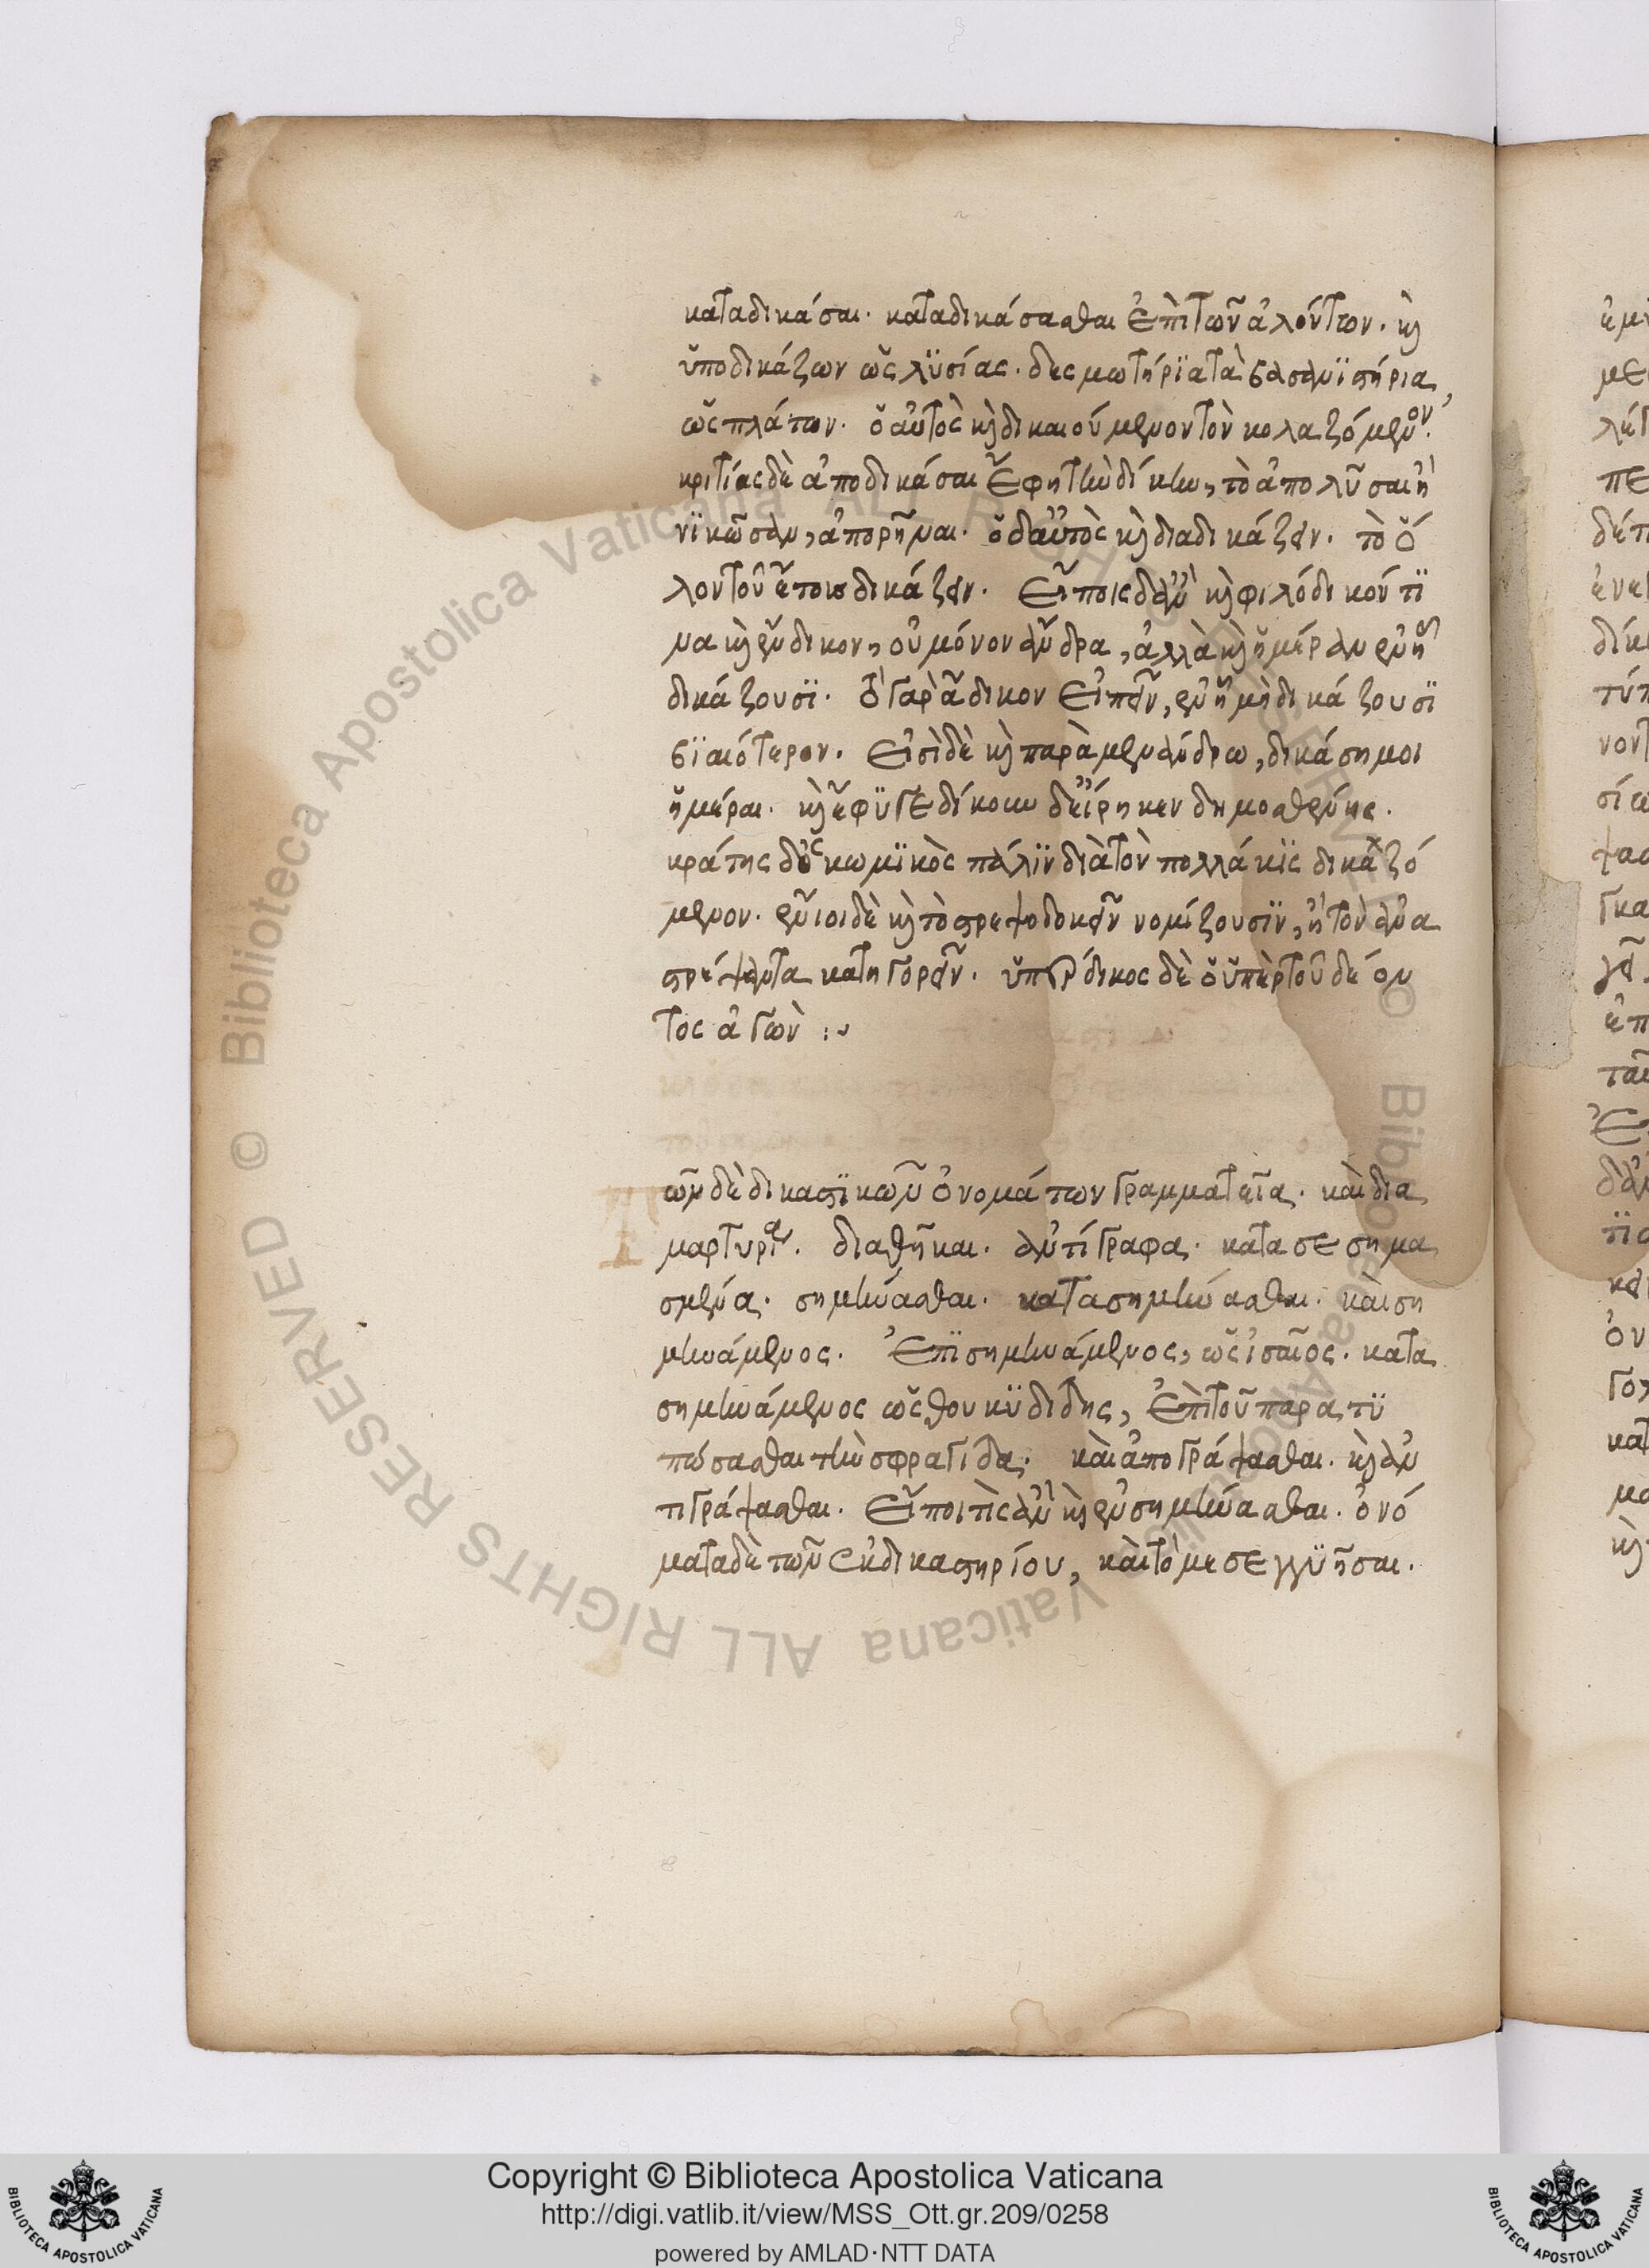 καταδικάσαι· καταδικάσασθαι ἐπὶ τῶν ἁλόντων· κ̀
ὑποδικάζων ὡς λϋσίας· δεσμωτήρϊα τὰ βασανϊστήρια,
ὡς πλάτων· ὁ αὐτὸς κ̀ δικαιούμενον τὸν κολαζόμενον·
κριτίας δὲ ἀποδικάσαι ἔφη τὴν δίκην, τὸ ἀπολῦσαι ἢ
νϊκῶσαν, ἀποφῆναι· ὁ δ' αὐτὸς κ̀ διαδικάζειν· τὸ ὅ
λον τοῦ ἔτους δικάζειν· εἴποις δ' ἂν κ̀ φιλόδικόν τϊ
να κ̀ ἔνδικον, οὐ μόνον ἄνδρα, ἀλλὰ κ̀ ἡμέραν ἐν ᾗ
δικάζουσϊ· ὃ γὰρ ἄδικον εἰπεῖν, ἐν ᾗ μὴ δικάζουσϊ
βϊαιότερον· εἰσὶ δὲ κ̀ παρὰ μενάνδρω, δικάσημοι
ἡμέραι· κ̀ ἔφϋγε δίκην δ' εἴρηκεν δημοσθένης·
κράτης δ' ὁ κωμϊκὸς πάλϊν διὰ τὸν πολλάκϊς δικαζό
μενον· ἔνιοι δὲ κ̀ τὸ στρεψοδικεῖν νομίζουσϊν, ἢ τὸν ἀνα
στρέψαντα κατηγορεῖν· ὑπέρδικος δὲ ὁ ὑπὲρ τοῦ δέον
τος ἀγὼν :~
Τῶν δὲ δικαστϊκῶν ὀνομάτων γραμματεῖα· καὶ δια
μαρτυρία· διαθῆκαι· ἀντίγραφα· κατασεσημα
σμένα· σημήνασθαι· κατασημήνασθαι· καὶ ση
μηνάμενος· ἐπϊσημηνάμενος, ὡς ἰσαῖος· κατα
σημηνάμενος ὡς θουκϋδίδης, ἐπὶ τοῦ παρατϋ
πώσασθαι τὴν σφραγίδα· καὶ ἀπογράψασθαι· κ̀ ἀν
τιγράψασθαι· εἴποι τὶς ἂν κ̀ ἐνσημήνασθαι· ὀνό
ματα δὲ τῶν ἐκ δικαστηρίου, καὶ τὸ μεσεγγϋῆσαι·
Copyright © Biblioteca Apostolica Vaticana
http://digi.vatlib.it/view/MSS_Ott.gr.209/0258
powered by AMLAD·NTT DATA